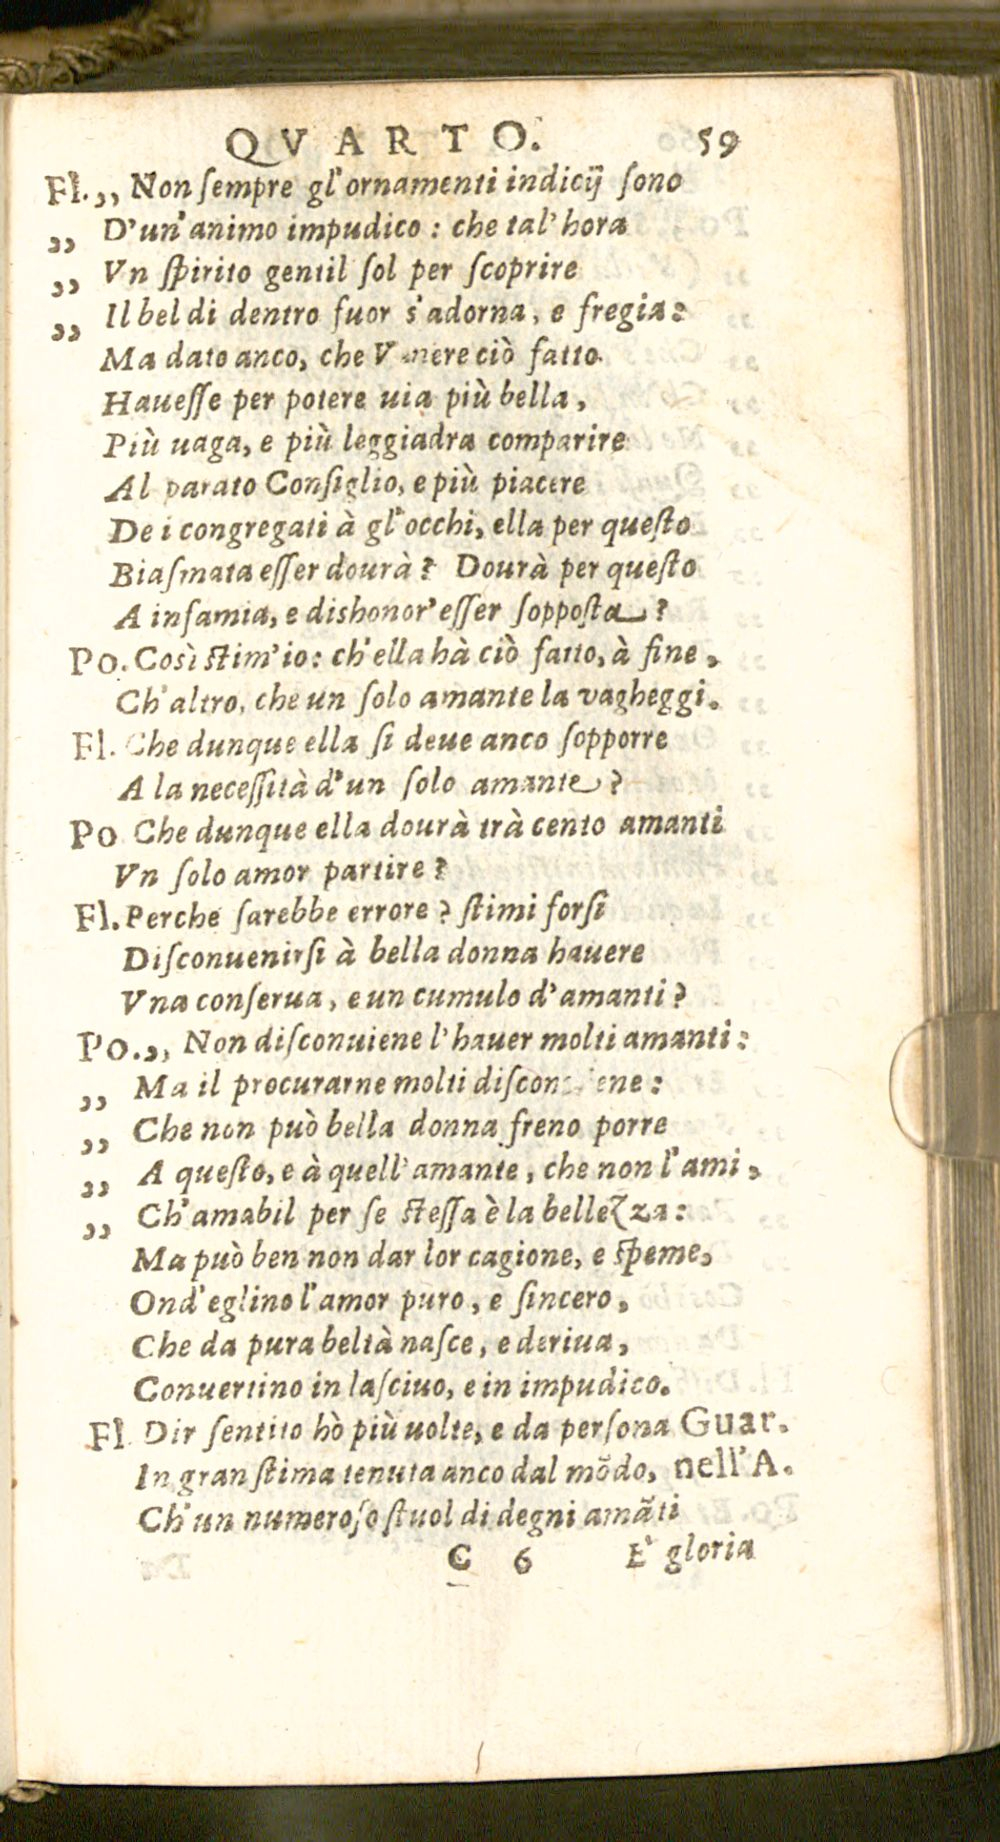 QVARTO. 59
Fl.,, Non ſempre gl'ornamenti indicij ſono
,, D'un'animo impudico : che tal'hora
,, Vn ſpirito gentil ſol per ſcoprire
,, Il bel di dentro fuor s'adorna, e fregia:
Ma dato anco, che Venere ciò fatto
Haueſſe per potere uia più bella,
Più uaga, e più leggiadra comparire
Al parato Conſiglio, e più piacere
De i congregati à gl'occhi, ella per queſto
Biaſmata eſſer dourà? Dourà per queſto
A infamia, e dishonor'eſſer ſoppoſta?
Po. Così ſtim'io: ch'ella hà ciò fatto, à fine,
Ch'altro, che un ſolo amante la vagheggi.
Fl. Che dunque ella ſi deue anco ſopporre
A la neceſſità d'un ſolo amante?
Po Che dunque ella dourà trà cento amanti
Vn ſolo amor partire?
Fl. Perche ſarebbe errore? ſtimi forſi
Diſconuenirſi à bella donna hauere
Vna conſerua, e un cumulo d'amanti?
Po.,, Non diſconuiene l'hauer molti amanti:
,, Ma il procurarne molti diſconuiene:
,, Che non può bella donna freno porre
,, A queſto, e à quell'amante, che non l'ami,
,, Ch'amabil per ſe ſteſſa è la bellezza:
Ma può ben non dar lor cagione, e ſpeme,
Ond'eglino l'amor puro, e ſincero,
Che da pura beltà naſce, e deriua,
Conuertino in laſciuo, e in impudico.
Fl Dir ſentito hò più uolte, e da perſona Guar.
In gran ſtima tenuta anco dal mõdo, nell'A.
Ch'un numeroſo ſtuol di degni amãti
C 6 E' gloria